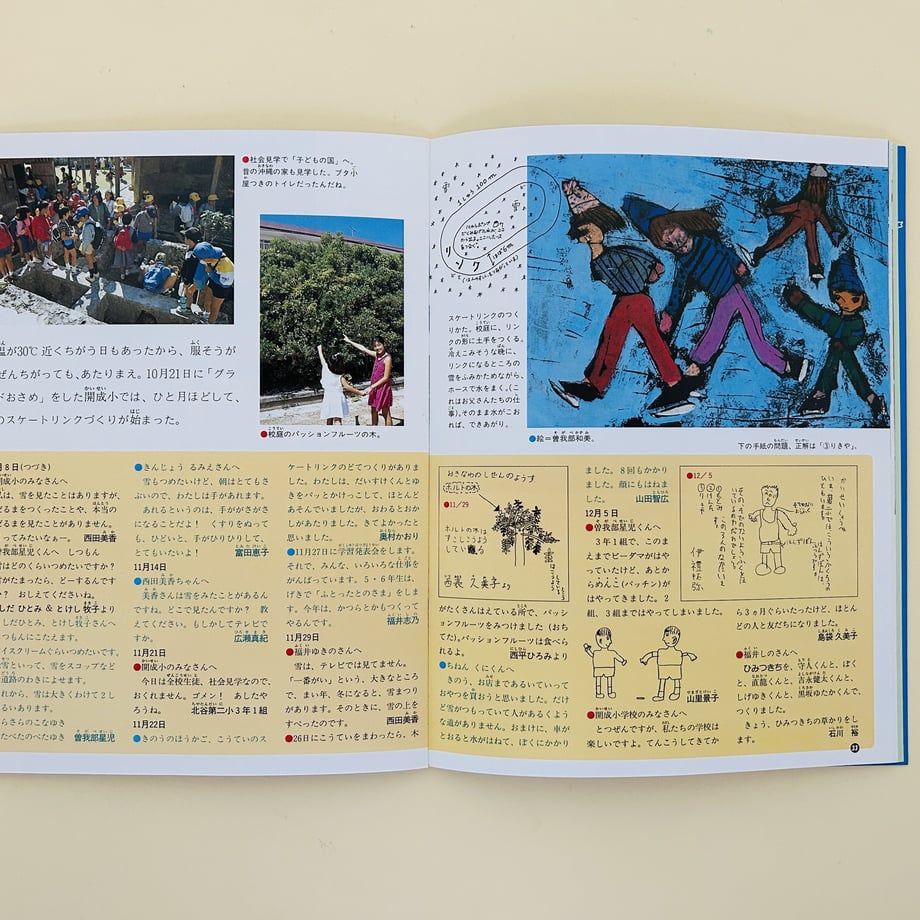 ●社会見学で「子どもの国」へ。
昔の沖縄の家も見学した。ブタ小
屋つきのトイレだったんだね。
温が30℃近くちがう日もあったから、服そうが
ぜんちがっても、あたりまえ。10月21日に「グラ
ドおさめ」をした開成小では、ひと月ほどして、
のスケートリンクづくりが始まった。
●校庭のパッションフルーツの木。
月8日(つづき)
開成小のみなさんへ
は、雪を見たことはありますが、
だるまをつくったことや、本当の
だるまを見たことがありません。
ってみたいなぁー。 西田美香
曽我部星児くんへ しつもん
雪はどのくらいつめたいですか?
雪がたまったら、どーするんです
か? おしえてくださいね。
しだ ひとみ & とけし 牧子より
しだひとみ、とけし牧子さんへ
つもんにこたえます。
イスクリームぐらいつめたいです。
雪といって、雪をスコップなど
道路のわきによせます。
れから、雪は大きくわけて2し
るいあります。
らさらのこなゆき
たべたのべたゆき 曽我部星児
●きんじょう るみえさんへ
雪もつめたいけど、朝はとてもさ
ぶいので、わたしは手があれます。
あれるというのは、手ががさがさ
になることだよ! くすりをぬって
も、ひどいと、手がひりひりして、
とてもいたいよ! 富田恵子
11月14日
●西田美香ちゃんへ
美香さんは雪をみたことがあるん
ですね。どこで見たんですか? 教
えてください。もしかしてテレビで
すか。 広瀬真紀
11月21日
●開成小のみなさんへ
今日は全校生徒、社会見学なので、
おくれません。ゴメン! あしたや
ろうね。 北谷第二小3年1組
11月22日
●きのうのほうかご、こうていのス
ケートリンクのどてつくりがありま
した。わたしは、だいすけくんとゆ
きをバッとかけっこして、ほとんど
あそんでいましたが、おわるとおか
しがあたりました。きてよかったと
思いました。 奥村かおり
●11月27日に学習発表会をします。
それで、みんな、いろいろな仕事を
がんばっています。5・6年生は、
げきで「ふとったとのさま」をしま
す。今年は、かつらとかもつくって
やるんです。 福井志乃
11月29日
●福井ゆきのさんへ
雪は、テレビでは見てません。
「一番がい」という、大きなところ
で、まい年、冬になると、雪まつり
があります。そのときに、雪の上を
すべったのです。 西田美香
●26日にこうていをまわったら、木
1しゅう200m
雪
リンク
はば6m
スケートリンクのつく
りかた。校庭に、リン
クの形に土手をつくる。
冷えこみそうな晩に、
リンクになるところの
雪をふみかためながら、
ホースで水をまく。(こ
れはお父さんたちの仕
事)。そのまま水がこお
れば、できあがり。
●絵=曽我部和美。
下の手紙の問題、正解は「③りきや」。
おきなわのしぜんのようす
ホルトの木
●11/29
ホルトの木は
すこしこうよう
している
がたくさんはえている所で、パッシ
ョンフルーツをみつけました(おち
てた)。パッションフルーツは食べら
れるよ。 西平ひろみより
●ちねん くにくんへ
きのう、お店まであるいていって
おやつを買おうと思いました。だけ
ど雪がつもっていて人があるくよう
な道がありません。おまけに、車が
とおると水がはねて、ぼくにかかり
ました。8回もかかり
ました。顔にもはねま
した。 山田智広
12月5日
●曽我部星児くんへ
3年1組で、このま
えまでビーダマがはや
っていたけど、あとか
らめんこ(パッチン)が
はやってきました。2
組、3組まではやってしまいました。
山里景子
●開成小学校のみなさんへ
とつぜんですが、私たちの学校は
楽しいですよ。てんこうしてきてか
●12/5
ら3ヵ月ぐらいたったけど、ほとん
どの人と友だちになりました。
島袋久美子
●福井しのさんへ
ひみつきちを、守人くんと、ぼく
と、直龍くんと、吉永健太くんと、
しげゆきくんと、黒坂ゆたかくんで、
つくりました。
きょう、ひみつきちの草かりをし
ます。 石川 裕
33